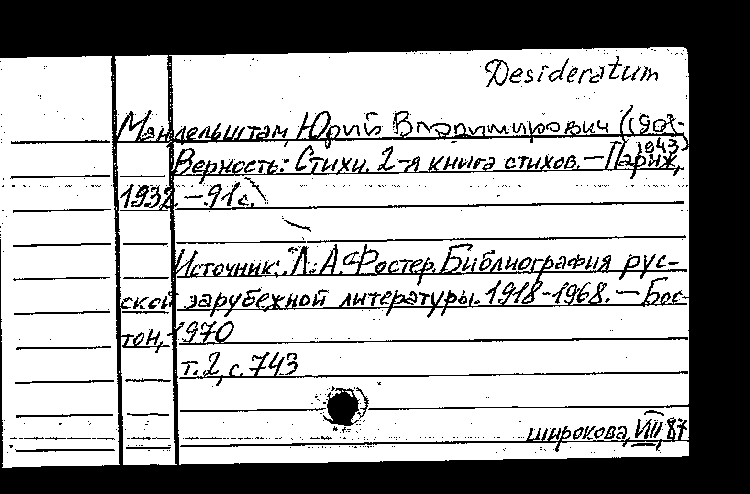 Desideratum
Мандельштам, Юрий Владимирович (1908-
1943)
Верность: Стихи. 2-я книга стихов. — Париж,
1932 — 91 с.
Источник: Л. А. Фостер. Библиография рус-
ской зарубежной литературы. 1918-1968. — Бос-
тон, 1970
т. 2, с. 743
широкова, VIII, 87